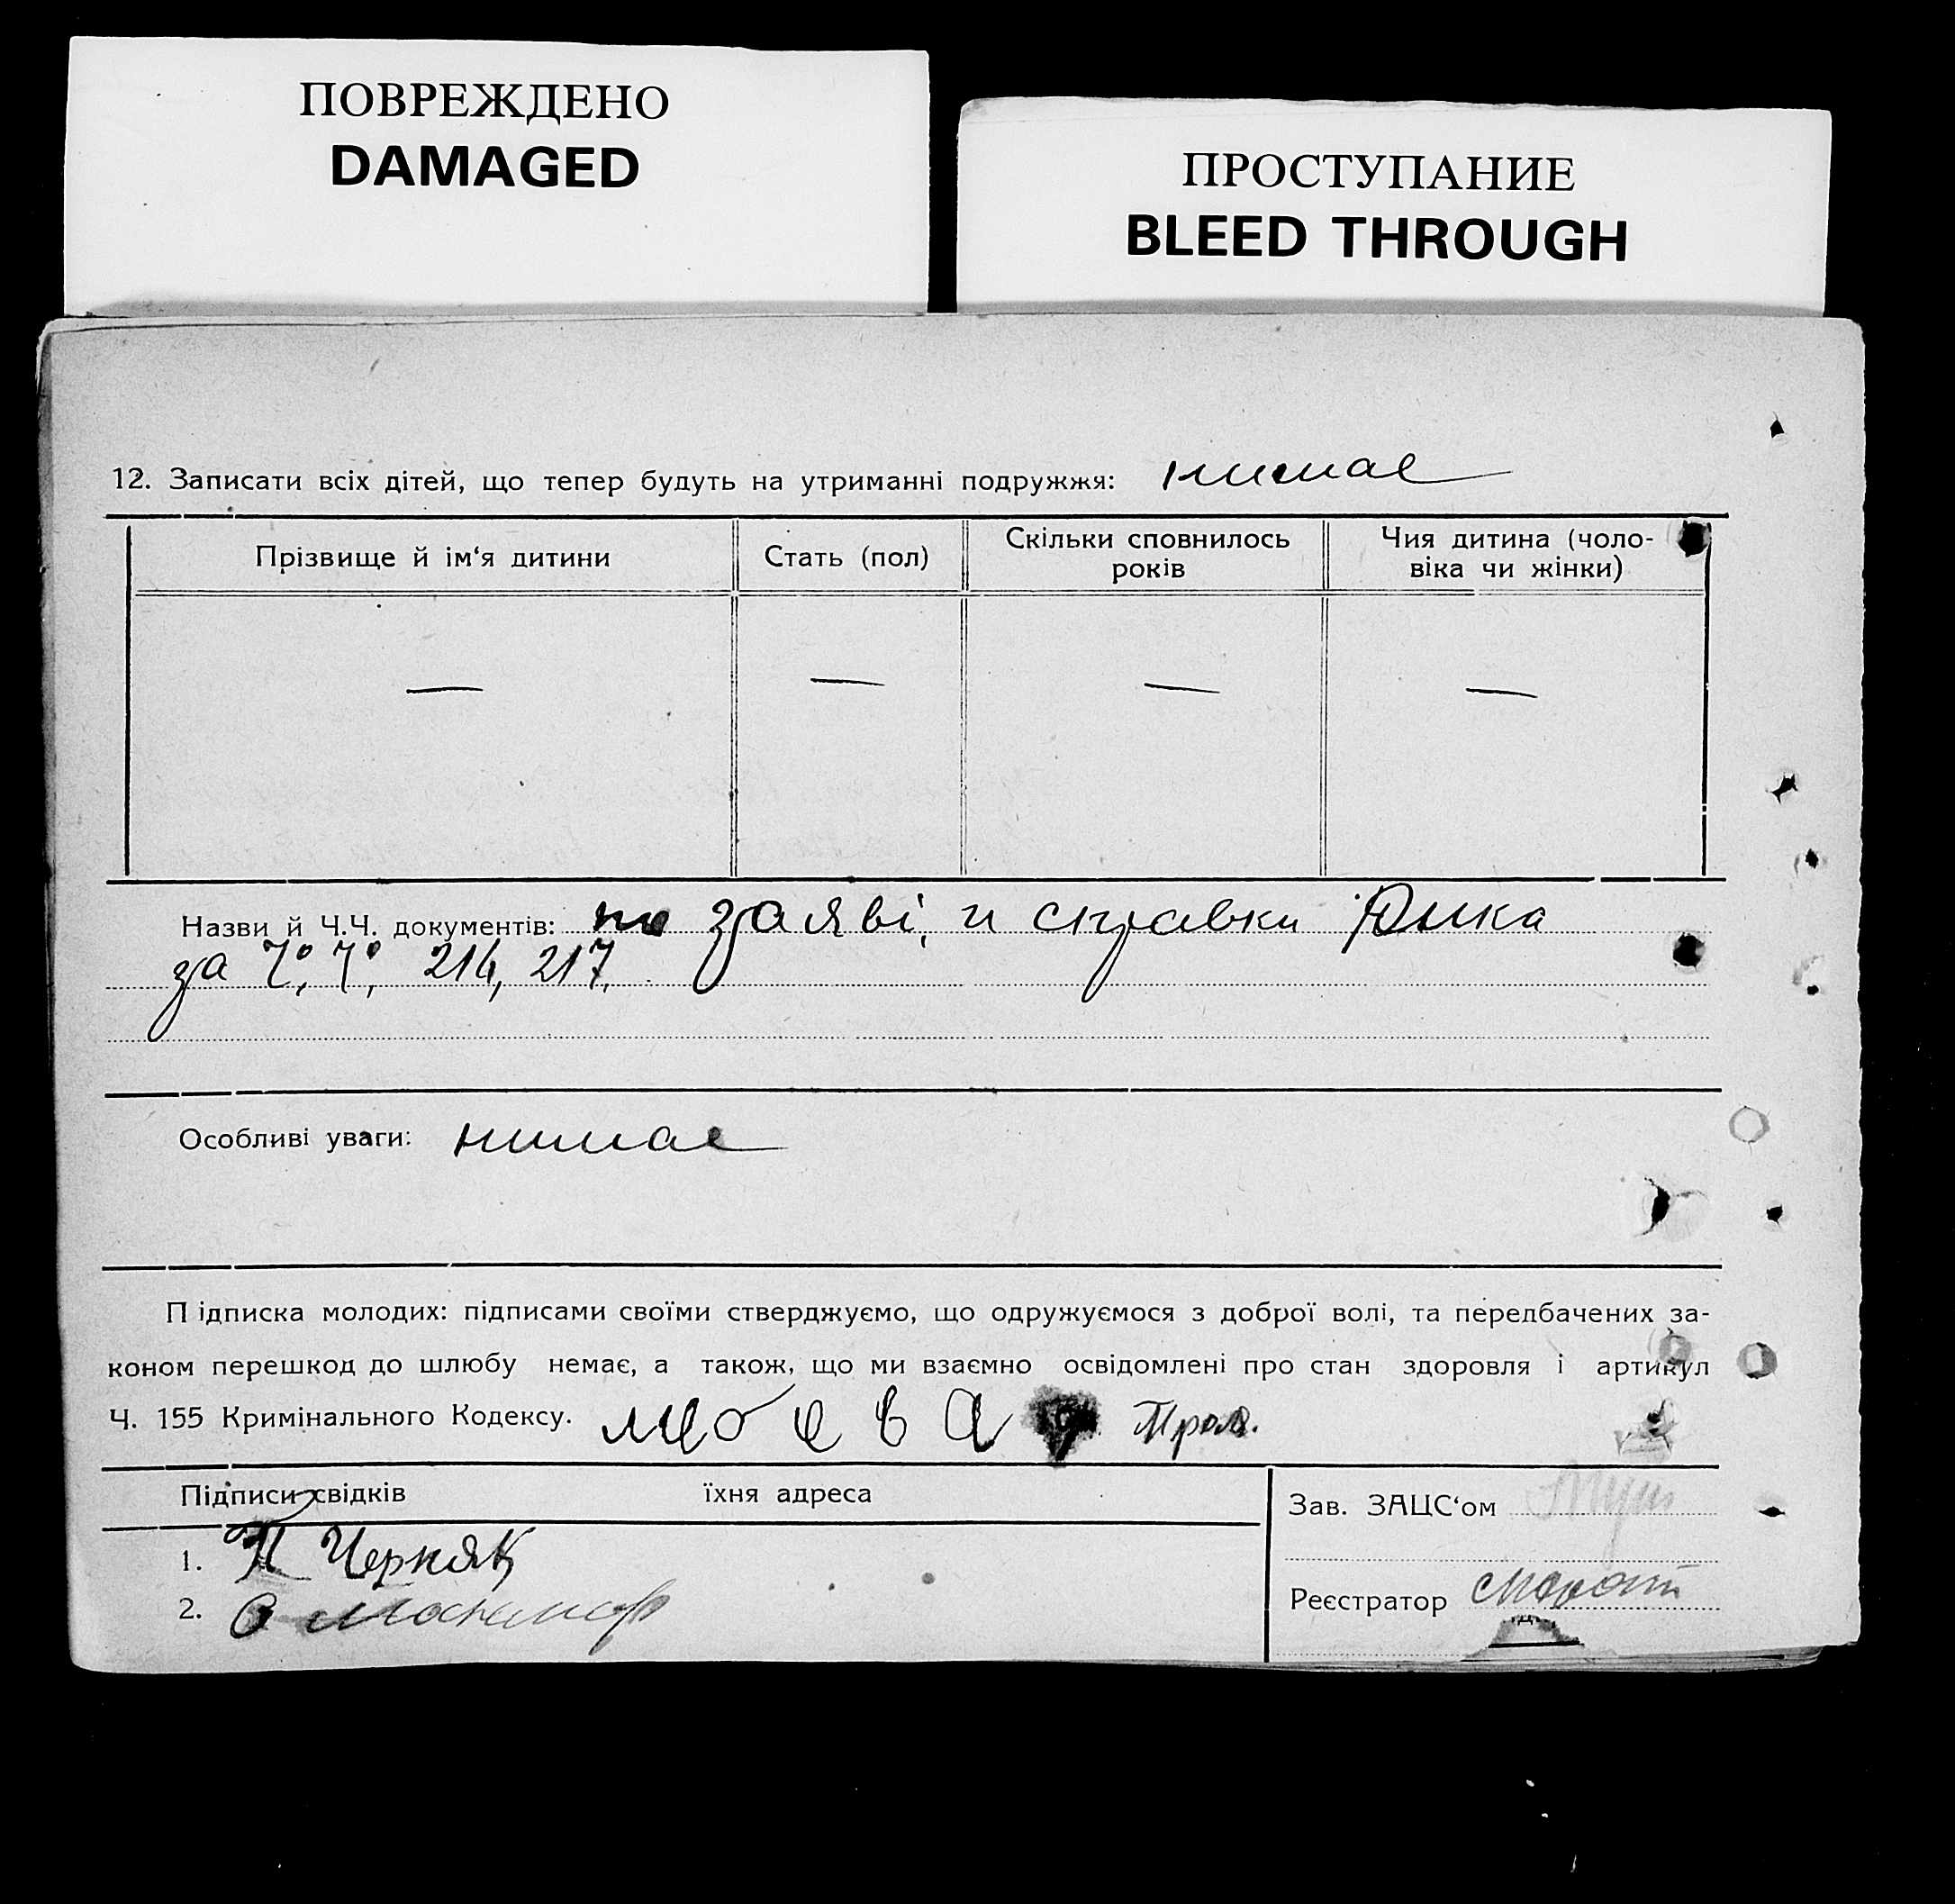 ПОВРЕЖДЕНО
DAMAGED
ПРОСТУПАНИЕ
BLEED THROUGH
12. Записати всіх дітей, що тепер будуть на утриманні подружжя: нимае
Прізвище й ім‘я дитини
Стать (пол)
Скільки сповнилось
років
Чия дитина (чоло-
віка чи жінки)
— — — —
Назви й Ч.Ч. документів: по заяві, и справки
за 217.
Особливі уваги: нимае
Підписка молодих: підписами своїми стверджуємо, що одружуємося з доброї волі, та передбачених за-
коном перешкод до шлюбу немає, а також, що ми взаємно освідомлені про стан здоровля і артикул
Ч. 155 Кримінального Кодексу.
Підписи свідків їхня адреса
Зав. ЗАЦС‘ом
1. П Черняк
2.
Реєстратор